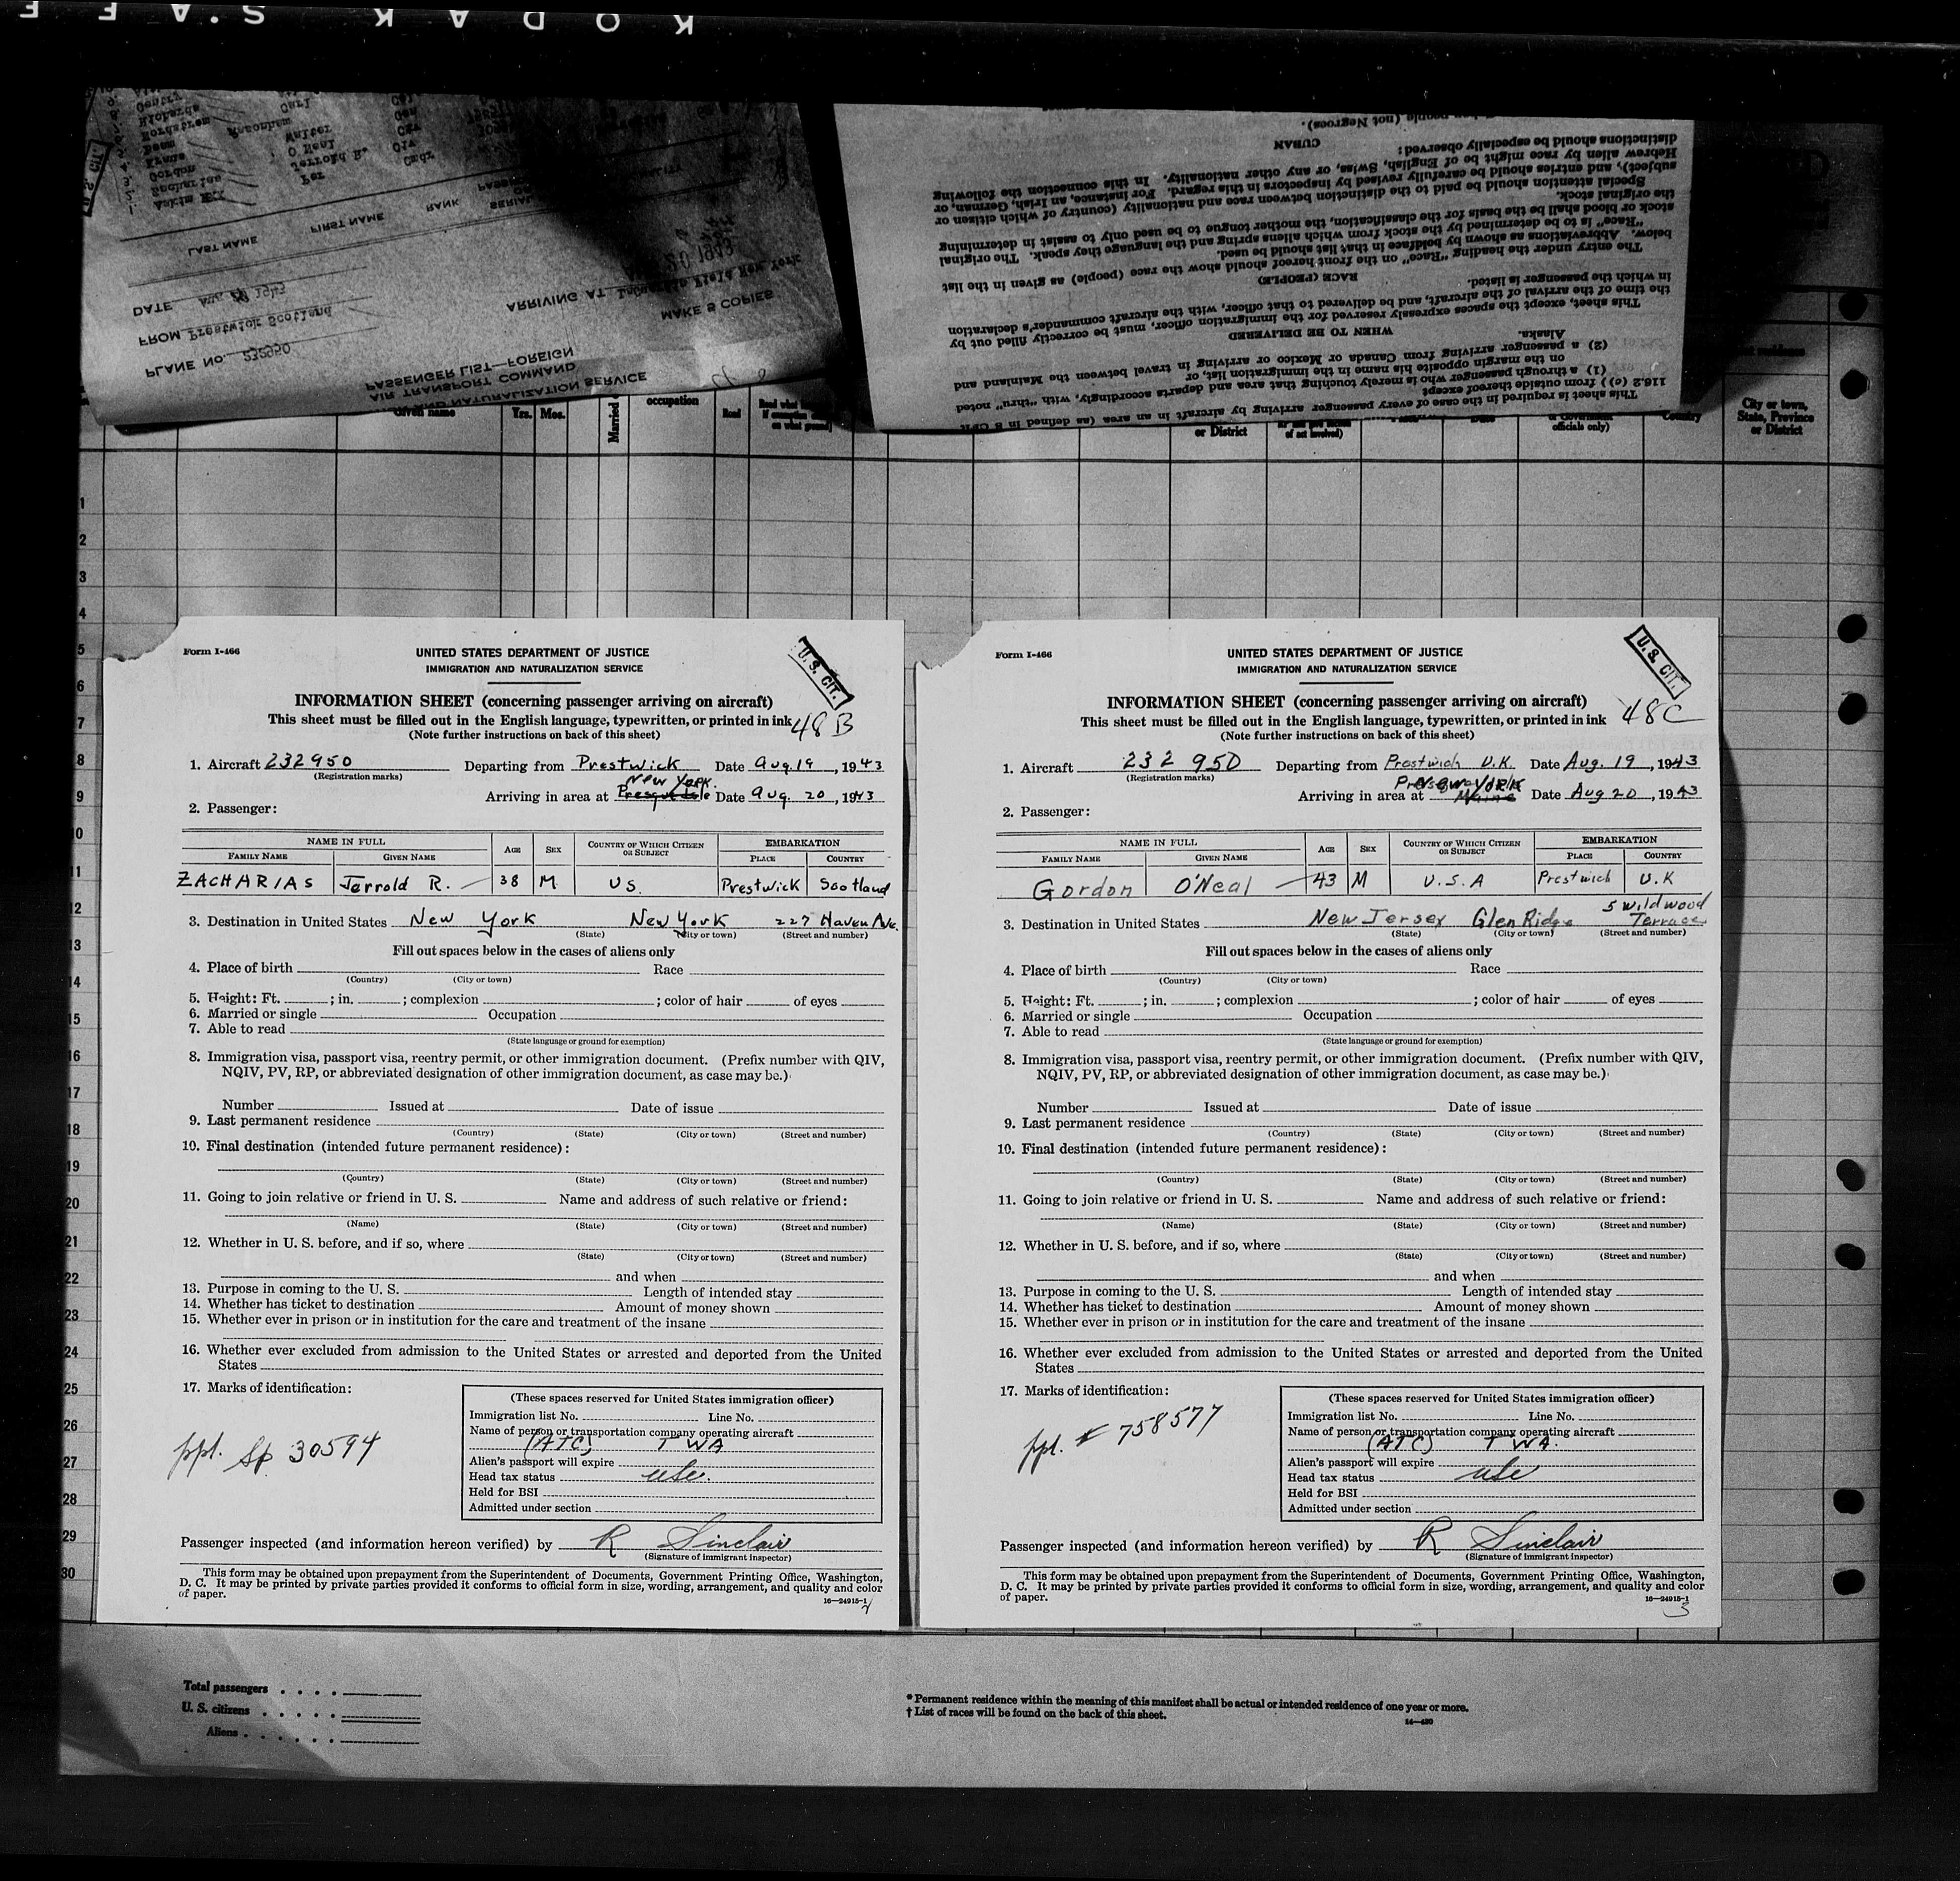 KODAK S.A.F.E
MAKE 5 COPIES
AIR TRANSPORT COMMAND
PASSENGER LIST—FOREIGN
PLANE NO. 232950
FROM Prestwick Scotland
ARRIVING AT LaGuardia Field New York
DATE Aug 1943
LAST NAME FIRST NAME RANK
Zacharias Jerrold R. Civ
Gordon O Neal Civ
This sheet is required in the case of every passenger arriving by aircraft in an area (as defined in 8 CFR
116.2 (c)) from outside thereof except
(1) a through passenger who is merely touching that area and departs accordingly, with "thru" noted
on the margin opposite his name in the immigration list, or
(2) a passenger arriving from Canada or Mexico or arriving in travel between the Mainland and
Alaska.
WHEN TO BE DELIVERED
This sheet, except the spaces expressly reserved for the immigration officer, must be correctly filled out by
the time of the arrival of the aircraft, and be delivered to that officer, with the aircraft commander's declaration
in which the passenger is listed.
RACE (PEOPLE)
The entry under the heading "Race" on the front hereof should show the race (people) as given in the list
below. Abbreviations as shown by boldface in that list should be used.
"Race" is to be determined by the stock from which aliens spring and the language they speak. The original
stock or blood shall be the basis for the classification, the mother tongue to be used only to assist in determining
the original stock.
Special attention should be paid to the distinction between race and nationality (country of which citizen or
subject), and entries should be carefully revised by inspectors in this regard. For instance, an Irish, German, or
Hebrew alien by race might be of English, Swiss, or any other nationality. In this connection the following
distinctions should be especially observed:
CUBAN
people (not Negroes).
Given name Yrs. Mos. occupation Read or District officials only) Country City or town, State, Province or District
1
2
3
4
5
6
7
8
9
10
11
12
13
14
15
16
17
18
19
20
21
22
23
24
25
26
27
28
29
30
Form I-466
UNITED STATES DEPARTMENT OF JUSTICE
IMMIGRATION AND NATURALIZATION SERVICE
U. S. CIT.
INFORMATION SHEET (concerning passenger arriving on aircraft)
This sheet must be filled out in the English language, typewritten, or printed in ink 48 B
(Note further instructions on back of this sheet)
1. Aircraft 232950 Departing from Prestwick Date Aug 19, 1943
(Registration marks)
New York
Arriving in area at Presque Isle Date Aug. 20, 1943
2. Passenger:
NAME IN FULL AGE SEX COUNTRY OF WHICH CITIZEN OR SUBJECT EMBARKATION
FAMILY NAME GIVEN NAME PLACE COUNTRY
ZACHARIAS Jerrold R. 38 M US. Prestwick Scotland
3. Destination in United States New York New York 227 Haven Ave.
(State) (City or town) (Street and number)
Fill out spaces below in the cases of aliens only
4. Place of birth Race
(Country) (City or town)
5. Height: Ft. ; in. ; complexion ; color of hair of eyes
6. Married or single Occupation
7. Able to read
(State language or ground for exemption)
8. Immigration visa, passport visa, reentry permit, or other immigration document. (Prefix number with QIV,
NQIV, PV, RP, or abbreviated designation of other immigration document, as case may be.)
Number Issued at Date of issue
9. Last permanent residence
(Country) (State) (City or town) (Street and number)
10. Final destination (intended future permanent residence):
(Country) (State) (City or town) (Street and number)
11. Going to join relative or friend in U. S. Name and address of such relative or friend:
(Name) (State) (City or town) (Street and number)
12. Whether in U. S. before, and if so, where
(State) (City or town) (Street and number)
and when
13. Purpose in coming to the U. S. Length of intended stay
14. Whether has ticket to destination Amount of money shown
15. Whether ever in prison or in institution for the care and treatment of the insane
16. Whether ever excluded from admission to the United States or arrested and deported from the United
States
17. Marks of identification:
ppt. Sp 30594
(These spaces reserved for United States immigration officer)
Immigration list No. Line No.
Name of person or transportation company operating aircraft
(ATC) TWA
Alien's passport will expire
Head tax status usc
Held for BSI
Admitted under section
Passenger inspected (and information hereon verified) by R Sinclair
(Signature of immigrant inspector)
This form may be obtained upon prepayment from the Superintendent of Documents, Government Printing Office, Washington,
D. C. It may be printed by private parties provided it conforms to official form in size, wording, arrangement, and quality and color
of paper.
16—24915-1
2
Form I-466
UNITED STATES DEPARTMENT OF JUSTICE
IMMIGRATION AND NATURALIZATION SERVICE
U. S. CIT.
INFORMATION SHEET (concerning passenger arriving on aircraft)
This sheet must be filled out in the English language, typewritten, or printed in ink 48C
(Note further instructions on back of this sheet)
1. Aircraft 232 950 Departing from Prestwich U.K. Date Aug. 19, 1943
(Registration marks)
New York
Arriving in area at Maine Date Aug 20, 1943
2. Passenger:
NAME IN FULL AGE SEX COUNTRY OF WHICH CITIZEN OR SUBJECT EMBARKATION
FAMILY NAME GIVEN NAME PLACE COUNTRY
Gordon O'Neal 43 M U.S.A Prestwich U.K
5 Wildwood
3. Destination in United States New Jersey Glen Ridge Terrace
(State) (City or town) (Street and number)
Fill out spaces below in the cases of aliens only
4. Place of birth Race
(Country) (City or town)
5. Height: Ft. ; in. ; complexion ; color of hair of eyes
6. Married or single Occupation
7. Able to read
(State language or ground for exemption)
8. Immigration visa, passport visa, reentry permit, or other immigration document. (Prefix number with QIV,
NQIV, PV, RP, or abbreviated designation of other immigration document, as case may be.)
Number Issued at Date of issue
9. Last permanent residence
(Country) (State) (City or town) (Street and number)
10. Final destination (intended future permanent residence):
(Country) (State) (City or town) (Street and number)
11. Going to join relative or friend in U. S. Name and address of such relative or friend:
(Name) (State) (City or town) (Street and number)
12. Whether in U. S. before, and if so, where
(State) (City or town) (Street and number)
and when
13. Purpose in coming to the U. S. Length of intended stay
14. Whether has ticket to destination Amount of money shown
15. Whether ever in prison or in institution for the care and treatment of the insane
16. Whether ever excluded from admission to the United States or arrested and deported from the United
States
17. Marks of identification:
ppt. # 758577
(These spaces reserved for United States immigration officer)
Immigration list No. Line No.
Name of person or transportation company operating aircraft
(ATC) TWA.
Alien's passport will expire
Head tax status usc
Held for BSI
Admitted under section
Passenger inspected (and information hereon verified) by R Sinclair
(Signature of immigrant inspector)
This form may be obtained upon prepayment from the Superintendent of Documents, Government Printing Office, Washington,
D. C. It may be printed by private parties provided it conforms to official form in size, wording, arrangement, and quality and color
of paper.
16—24915-1
3
Total passengers
U. S. citizens
Aliens
* Permanent residence within the meaning of this manifest shall be actual or intended residence of one year or more.
† List of races will be found on the back of this sheet.